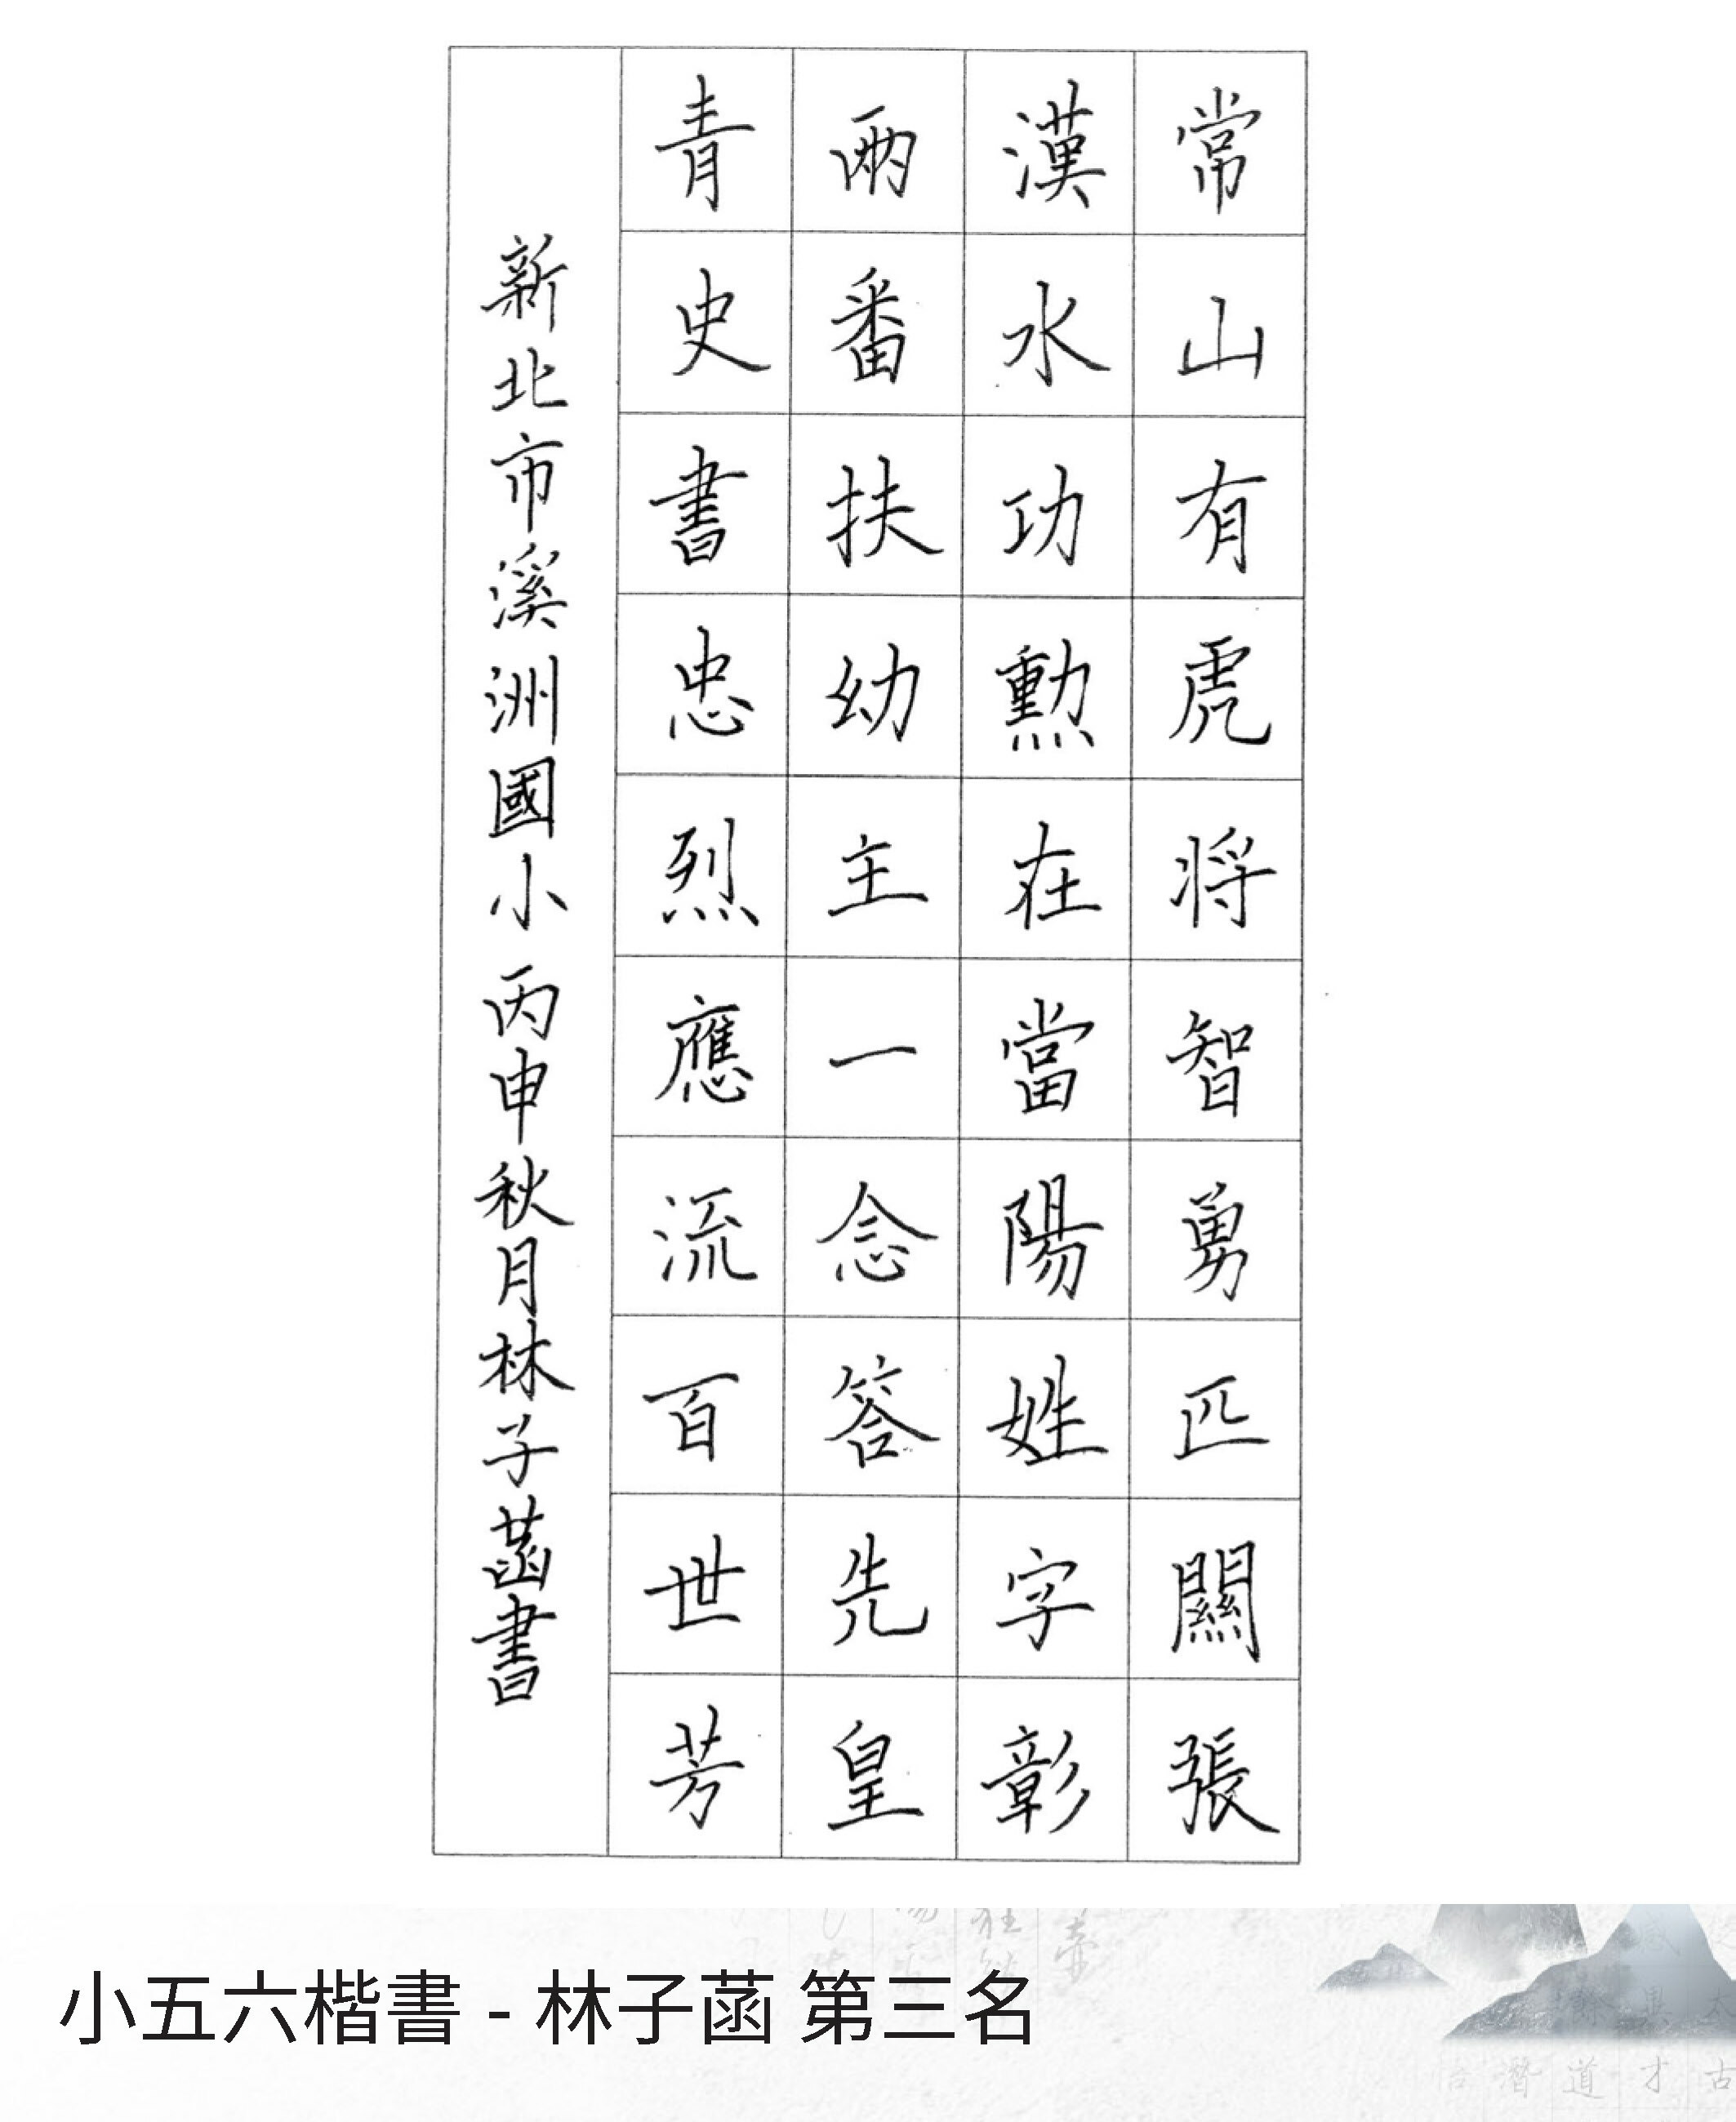 常山有虎将智勇匹關張
漢水功勲在當陽姓字彰
兩番扶幼主一念答先皇
青史書忠烈應流百世芳
新北市溪洲國小丙申秋月林子菡書
小五六楷書 - 林子菡 第三名